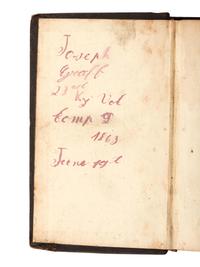 Joseph
Graff
23rd
Ky Vol
Comp D
1863